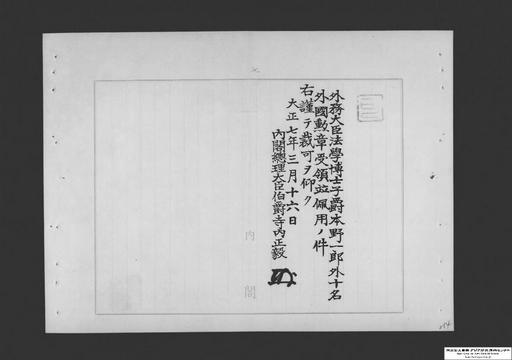 外務大臣法學博士子爵本野一郎外十名
外國勲章受領並佩用ノ件
右謹テ裁可ヲ仰ク
大正七年三月十六日
內閣總理大臣伯爵寺內正毅
內閣